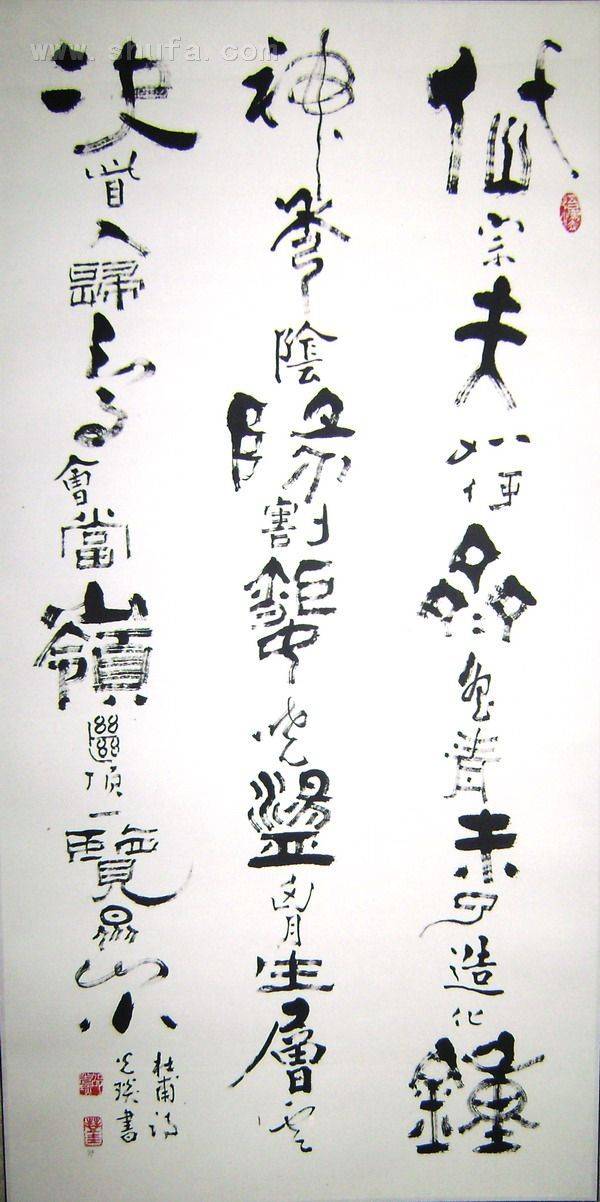 www.shufa.com
岱宗夫如何齊魯青未了造化鍾
神秀陰陽割昏曉盪胷生層雲
決眥入歸鳥會當嶺𢇍頂一覽眾山小
杜甫詩
書